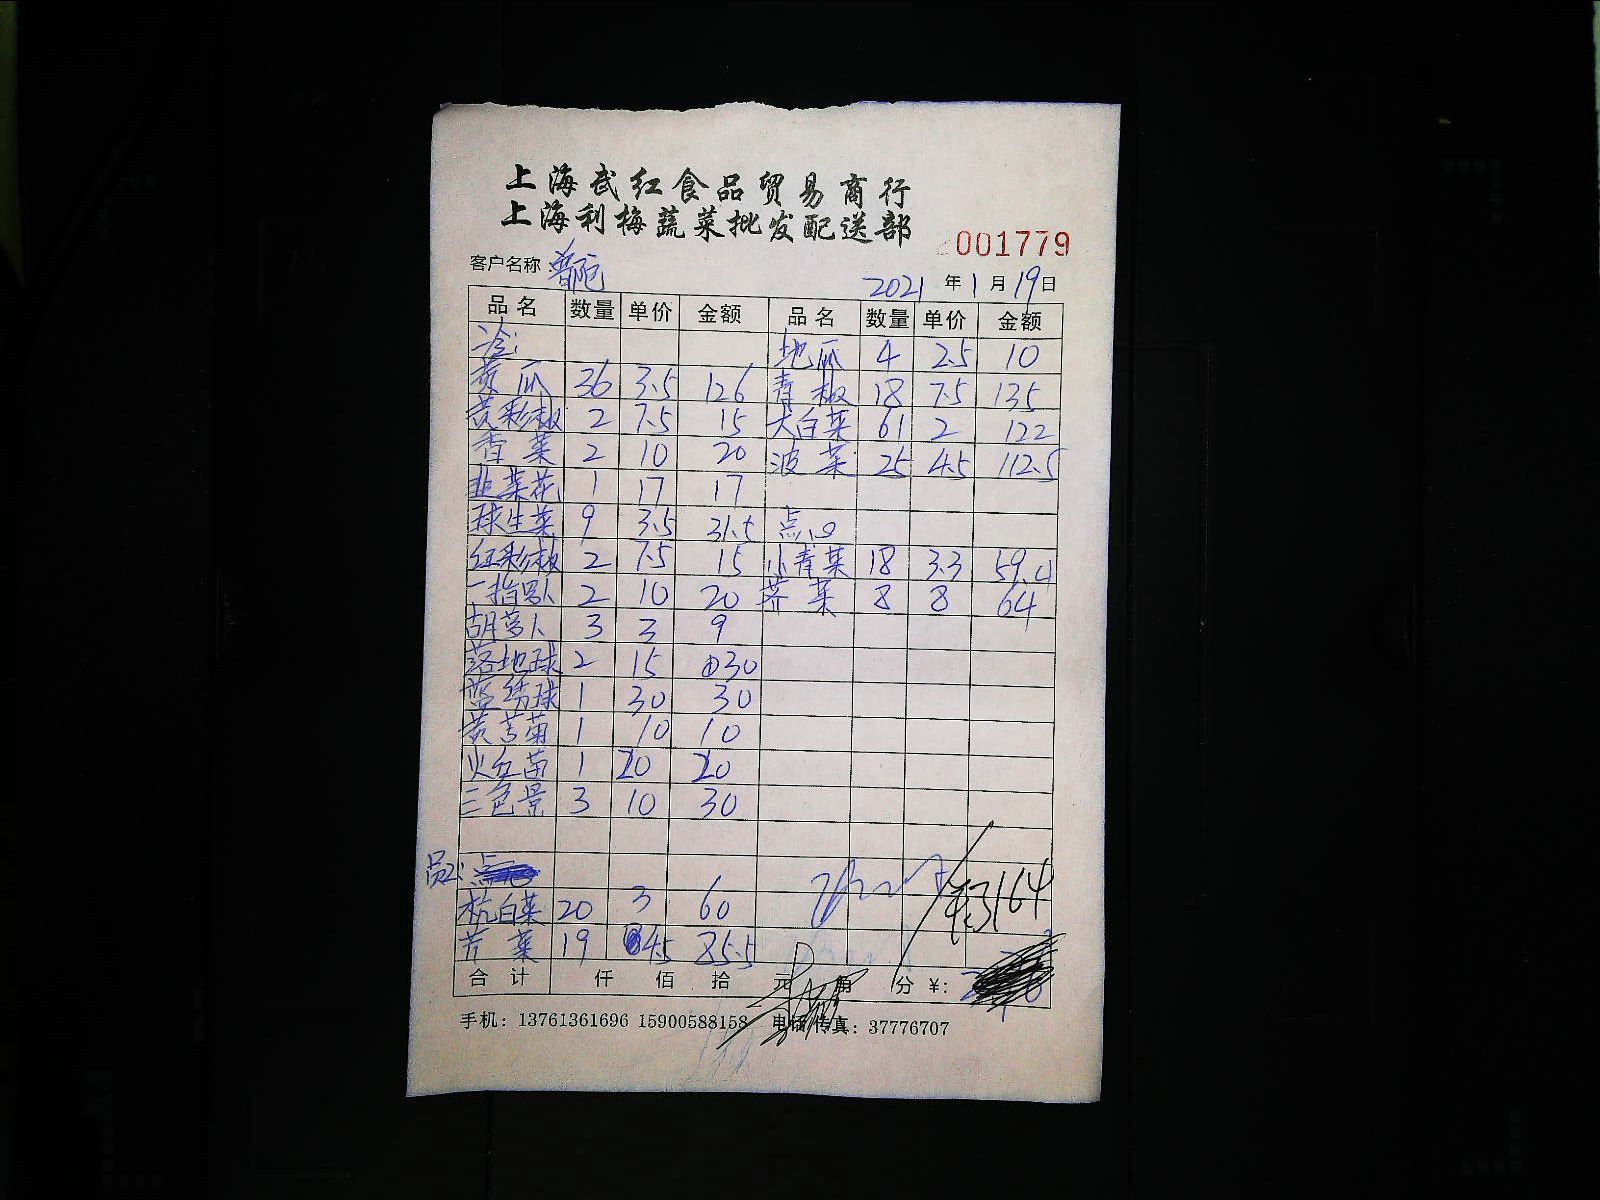 上海武红食品贸易商行
上海利梅蔬菜批发配送部
001779
客户名称：普陀
2021 年 1 月 19 日
品名 数量 单价 金额 品名 数量 单价 金额
冷: 地瓜 4 2.5 10
黄瓜 36 3.5 126 青椒 18 7.5 135
黄彩椒 2 7.5 15 大白菜 61 2 122
香菜 2 10 20 波菜 25 4.5 112.5
韭菜花 1 17 17
球生菜 9 3.5 31.5 点心
红彩椒 2 7.5 15 小青菜 18 3.3 59.4
一指罗卜 2 10 20 荠菜 8 8 64
胡萝卜 3 3 9
落地球 2 15 30
蓝绣球 1 30 30
黄苦菊 1 10 10
火红苗 1 20 20
三色景 3 10 30
员工:
杭白菜 20 3 60
芹菜 19 4.5 85.5
合计 仟 佰 拾 元 角 分 ¥:
手机：13761361696 15900588158 电话 传真：37776707